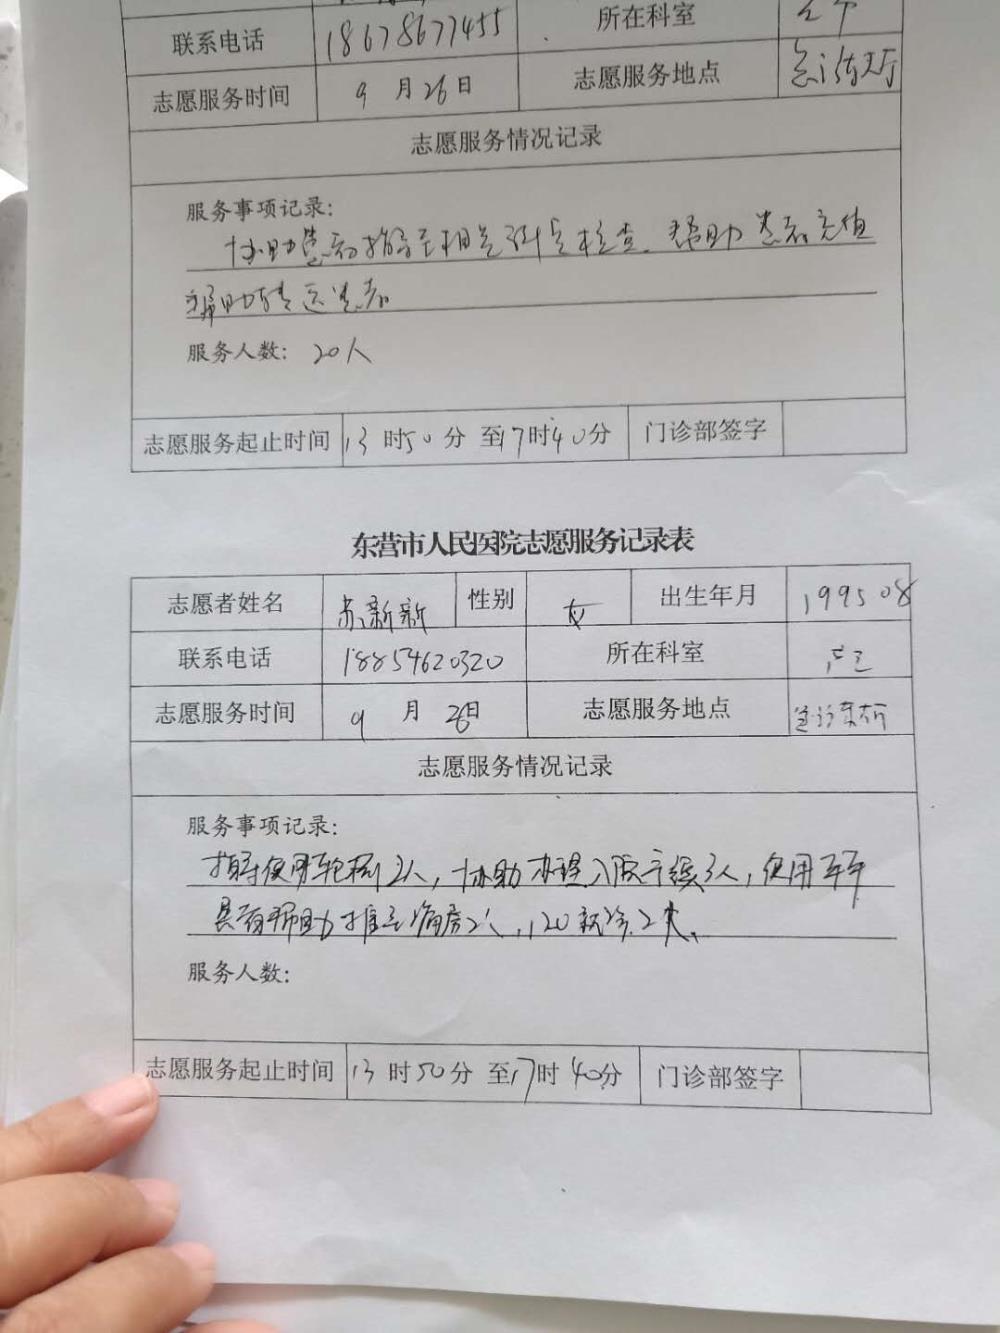 联系电话 18678677455 所在科室
志愿服务时间 9月26日 志愿服务地点 急诊大厅
志愿服务情况记录
服务事项记录:
协助患者指导至相关科室检查、帮助患者充值
帮助转运患者
服务人数: 20人
志愿服务起止时间 13时50分至17时40分 门诊部签字
东营市人民医院志愿服务记录表
志愿者姓名 苏新新 性别 女 出生年月 199508
联系电话 18854620320 所在科室 产三
志愿服务时间 9月26日 志愿服务地点
志愿服务情况记录
服务事项记录:
指导使用轮椅2人,协助办理入院手续3人,使用平车
患者帮助推至病房2人,120就诊2人、
服务人数:
志愿服务起止时间 13时50分至17时40分 门诊部签字